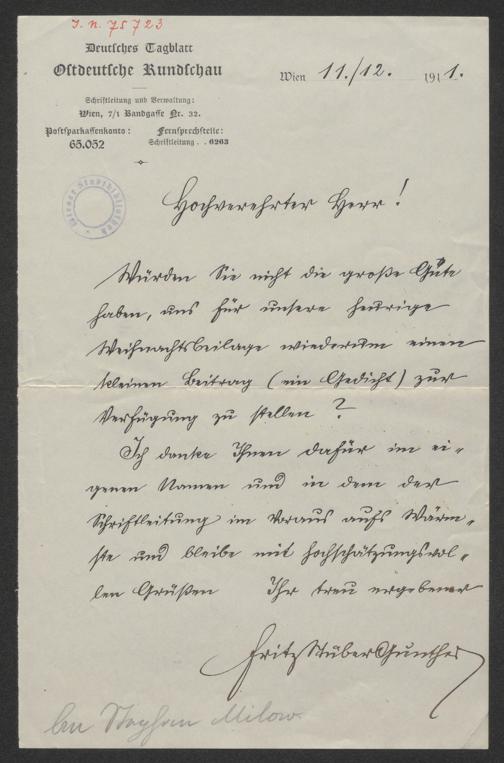 I. N. 75723
Deutsches Tagblatt
Ostdeutsche Rundschau
Wien 11./12. 1911.
Schriftleitung und Verwaltung:
Wien, 7/1 Bandgasse Nr. 32.
Postsparkassenkonto: Fernsprechstelle:
65.052 Schriftleitung . . 6263
Wiener Stadtbibliothek
Hochverehrter Herr!
Würden Sie nicht die große Güte
haben, uns für unsere heurige
Weihnachtsbeilage wiederum einen
kleinen Beitrag (ein Gedicht) zur
Verfügung zu stellen?
Ich danke Ihnen dafür im ei-
genen Namen und in dem der
Schriftleitung im Voraus aufs Wärm-
ste und bleibe mit hochschätzungsvol-
len Grüßen Ihr treu ergebener
Fritz Stüber Gunther
An Stephan Milow